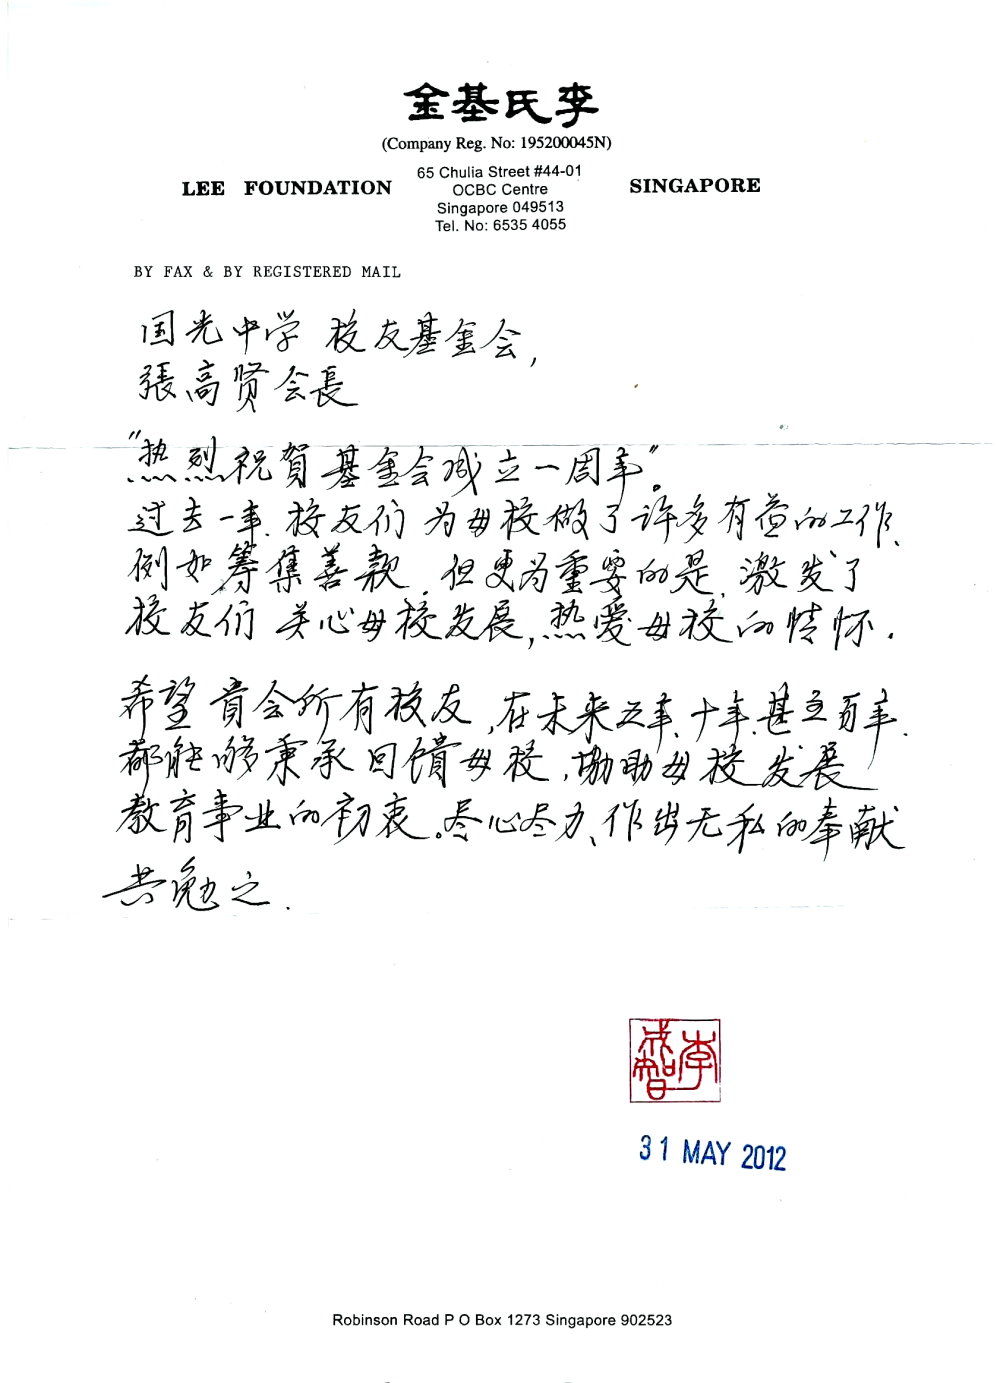 金基氏李
(Company Reg. No: 195200045N)
LEE FOUNDATION
65 Chulia Street #44-01
OCBC Centre
Singapore 049513
Tel. No: 6535 4055
SINGAPORE
BY FAX & BY REGISTERED MAIL
国光中学 校友基金会,
張高贤会長
"热烈祝賀基金会成立一周年"。
过去一年、校友们 为母校做了许多有益的工作、
例如筹集善款、但更为重要的是、激发了
校友们 关心母校发展,热爱母校的情怀.
希望 貴会所有校友,在未来五年、十年、甚至百年、
都能够秉承回馈母校,協助母校发展
教育事业的初衷。尽心尽力、作出无私的奉献
共勉之.
李成智
31 MAY 2012
Robinson Road P O Box 1273 Singapore 902523